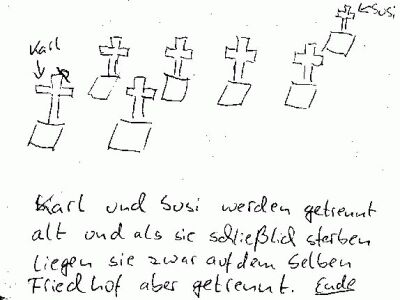 Susi
Karl
Karl und Susi werden getrennt
alt und als sie schließlich sterben
liegen sie zwar auf dem selben
Friedhof aber getrennt. Ende